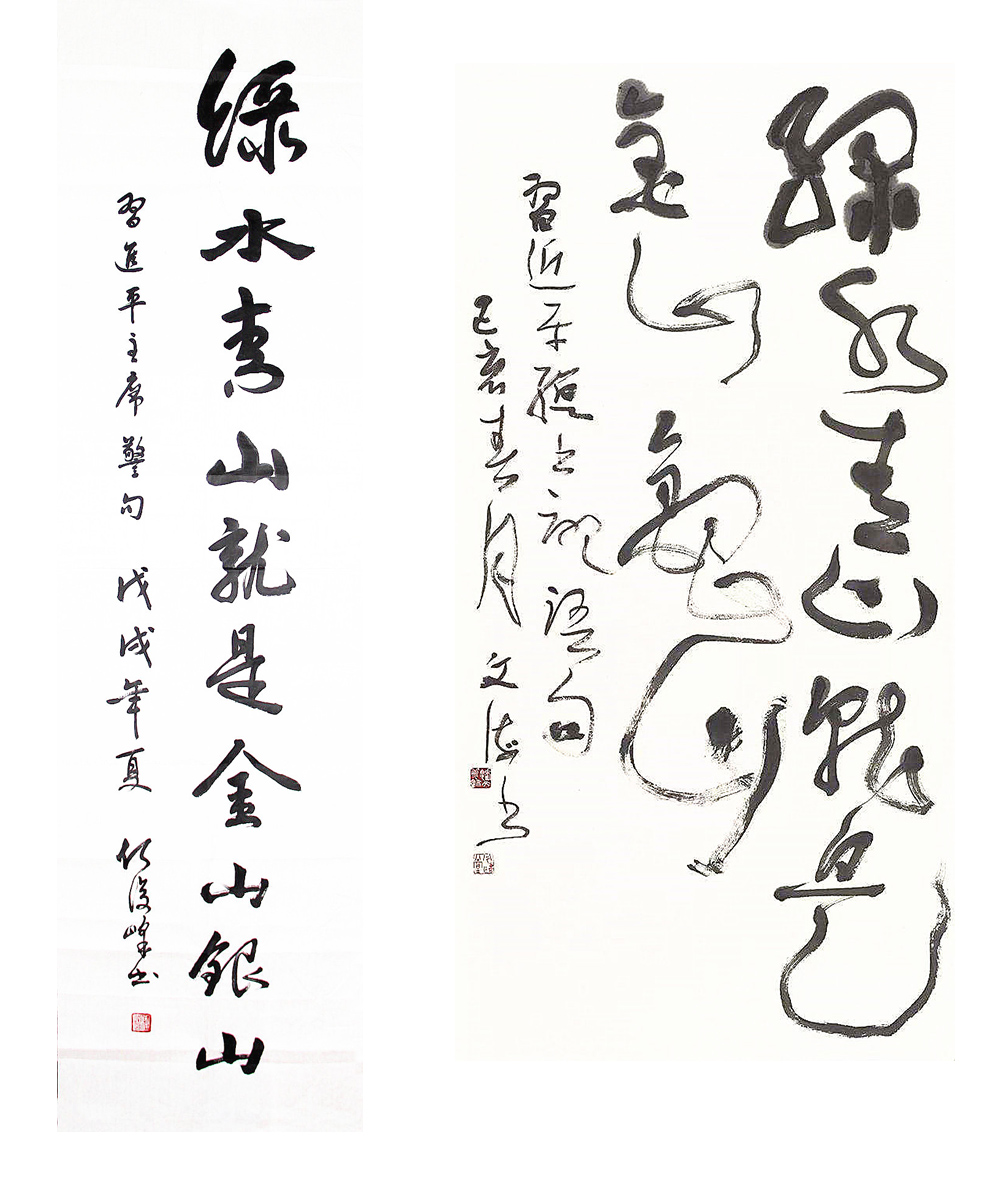 綠水青山就是金山銀山
習進平主席警句 戊戌年夏 俊峰书
綠水青山就是
金山銀山
習近平總书记語句
己亥春月 文德书